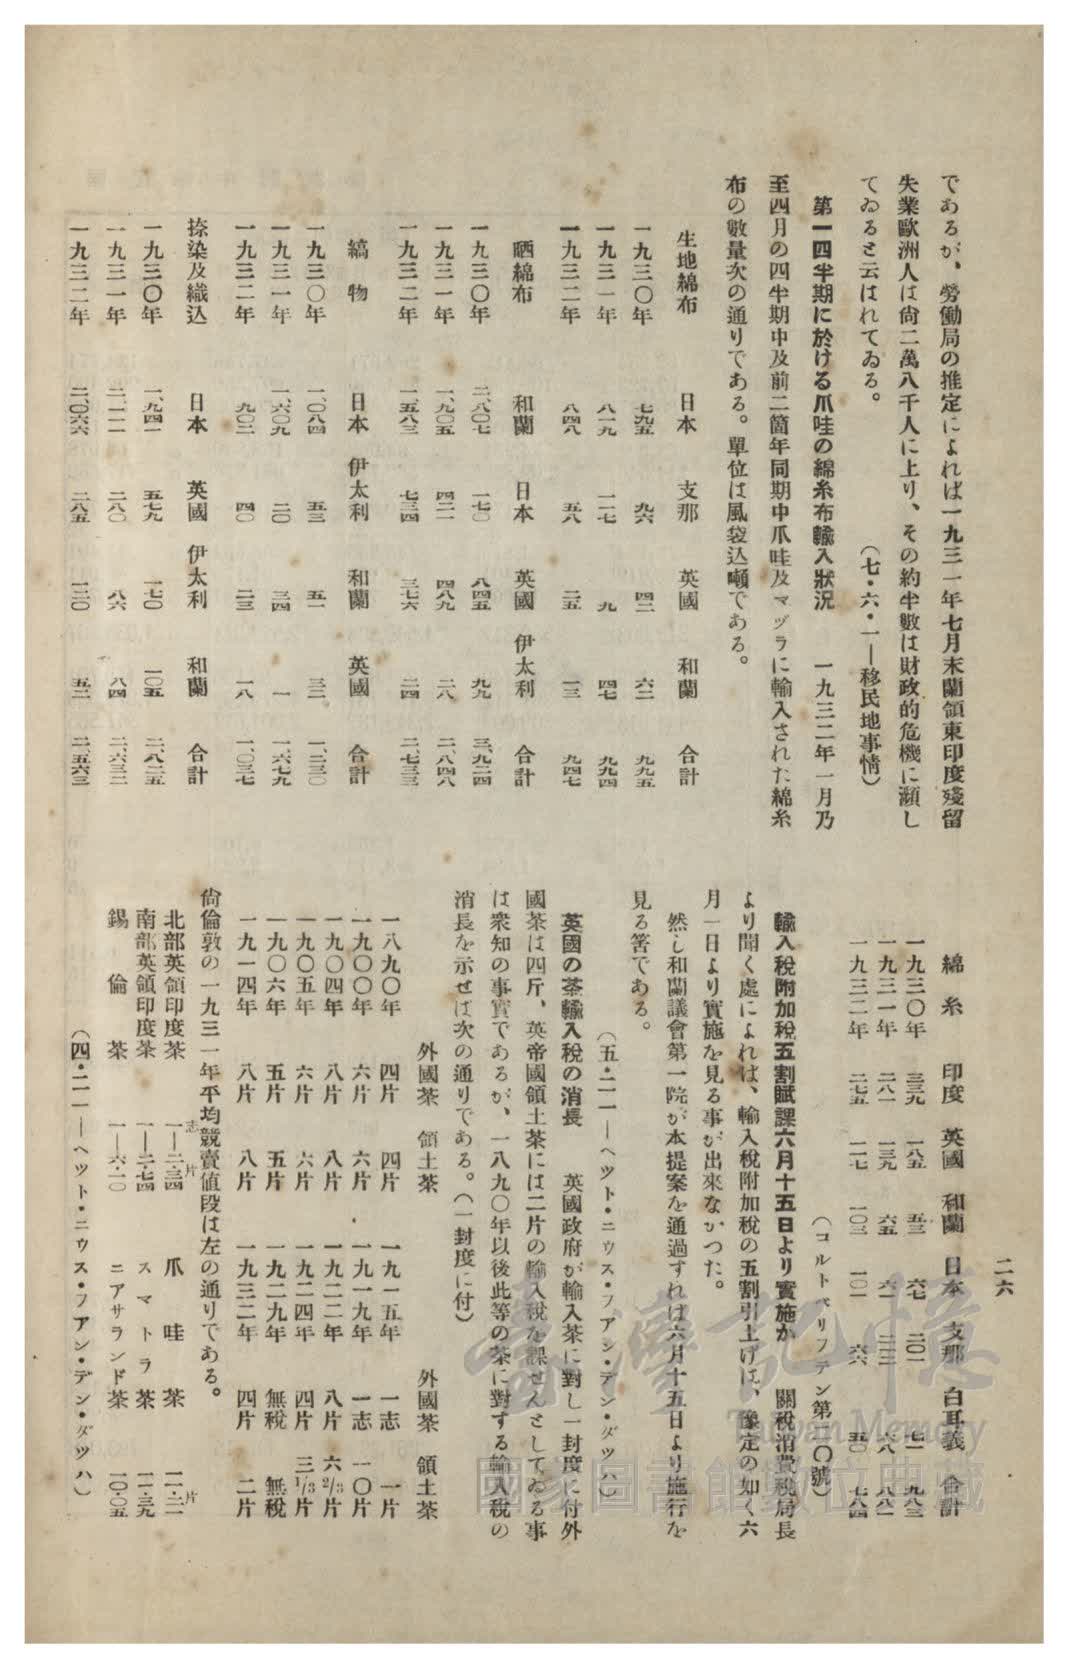 二六
であるが、勞働局の推定によれば一九三一年七月末蘭領東印度殘留
失業歐洲人は尙二萬八千人に上り、その約半數は財政的危機に瀕し
てゐると云はれてゐる。　（七・六・一―移民地事情）
第一四半期に於ける爪哇の綿糸布輸入狀況　一九三二年一月乃
至四月の四半期中及前二箇年同期中爪哇及マヅラに輸入された綿糸
布の數量次の通りである。單位は風袋込噸である。
生地綿布　日本　支那　英國　和蘭　合計
一九三〇年　七九五　九六　四二　六二　九九五
一九三一年　八一九　一一七　九　四七　九九四
一九三二年　八四八　五八　二五　一三　九四七
晒綿布　和蘭　日本　英國　伊太利　合計
一九三〇年　二、八〇七　一七〇　八四五　九九　三、九二四
一九三一年　一、九〇五　四二一　四八九　二八　二、八四八
一九三二年　一、五八三　七三四　三七六　二四　二、七三三
縞物　日本　伊太利　和蘭　英國　合計
一九三〇年　一、〇八四　五三　五一　三二　一、二三〇
一九三一年　一、六〇九　二〇　三四　一　一、六七九
一九三二年　九〇二　四〇　二三　一八　一、〇三七
捺染及織込　日本　英國　伊太利　和蘭　合計
一九三〇年　一、九四一　五七九　一七〇　一〇五　二、八二五
一九三一年　二、一一一　二八〇　八六　八四　二、六三二
一九三二年　二、〇六六　二八五　一二〇　五二　二、五六三
綿糸　印度　英國　和蘭　日本　支那　白耳義　合計
一九三〇年　三三九　一八五　五三　六七　二〇一　七一　九八三
一九三一年　二八一　一三九　六五　六一　二三二　六八　八八一
一九三二年　二七五　一一七　一〇三　一〇一　六六　五〇　七八四
（コルトベリフテン第二〇號）
輸入稅附加稅五割賦課六月十五日より實施か　關稅消費稅局長
より聞く處によれば、輸入稅附加稅の五割引上げは、豫定の如く六
月一日より實施を見る事が出來なかつた。
然し和蘭議會第一院が本提案を通過すれば六月十五日より施行を
見る筈である。
（五・二一―ヘツト・ニウス・フアン・デン・ダツハ）
英國の茶輸入稅の消長　英國政府が輸入茶に對し一封度に付外
國茶は四片、英帝國領土茶には二片の輸入稅を課せんとしてゐる事
は衆知の事實であるが、一八九〇年以後此等の茶に對する輸入稅の
消長を示せば次の通りである。（一封度に付）
外國茶　領土茶　外國茶　領土茶
一八九〇年　四片　四片　一九一五年　一志　一片
一九〇〇年　六片　六片　一九一九年　一志　一〇片
一九〇四年　八片　八片　一九二二年　八片　六2/3片
一九〇五年　六片　六片　一九二四年　四片　三1/3片
一九〇六年　五片　五片　一九二九年　無稅　無稅
一九一四年　八片　八片　一九三二年　四片　二片
尙倫敦の一九三一年平均競賣値段は左の通りである。
志　片　片
北部英領印度茶　一―二・三四　爪哇茶　一一・二一
南部英領印度茶　一―二・七四　スマトラ茶　一一・三九
錫倫茶　一―六・一〇　ニアサランド茶　一〇・〇五
（四・二一―ヘツト・ニウス・フアン・デン・ダツハ）
臺灣記憶
Taiwan Memory
國家圖書館數位典藏